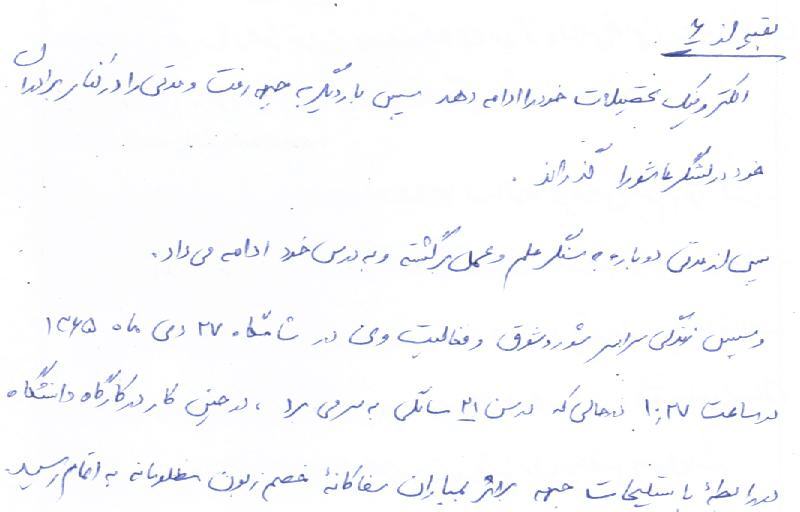 بقیه از ۶
الکترونیک تحصیلات خود را ادامه دهد سپس بار دیگر به جبهه رفت و مدتی را در کنار برادران
خود در لشگر عاشورا گذراند .
پس از مدتی دوباره به سنگر علم و عمل برگشته و به درس خود ادامه می داد .
و سپس زندگی سراسر شور و شوق و فعالیت وی در شامگاه ۲۷ دی ماه ۱۳۶۵
در ساعت ۱۰:۲۷ در حالی که در سن ۲۱ سالگی به سر می برد ، در حین کار در کارگاه دانشگاه
در رابطه با تسلیحات جبهه براثر بمباران سفاکانهٔ خصم زبون مظلومانه به اتمام رسید.